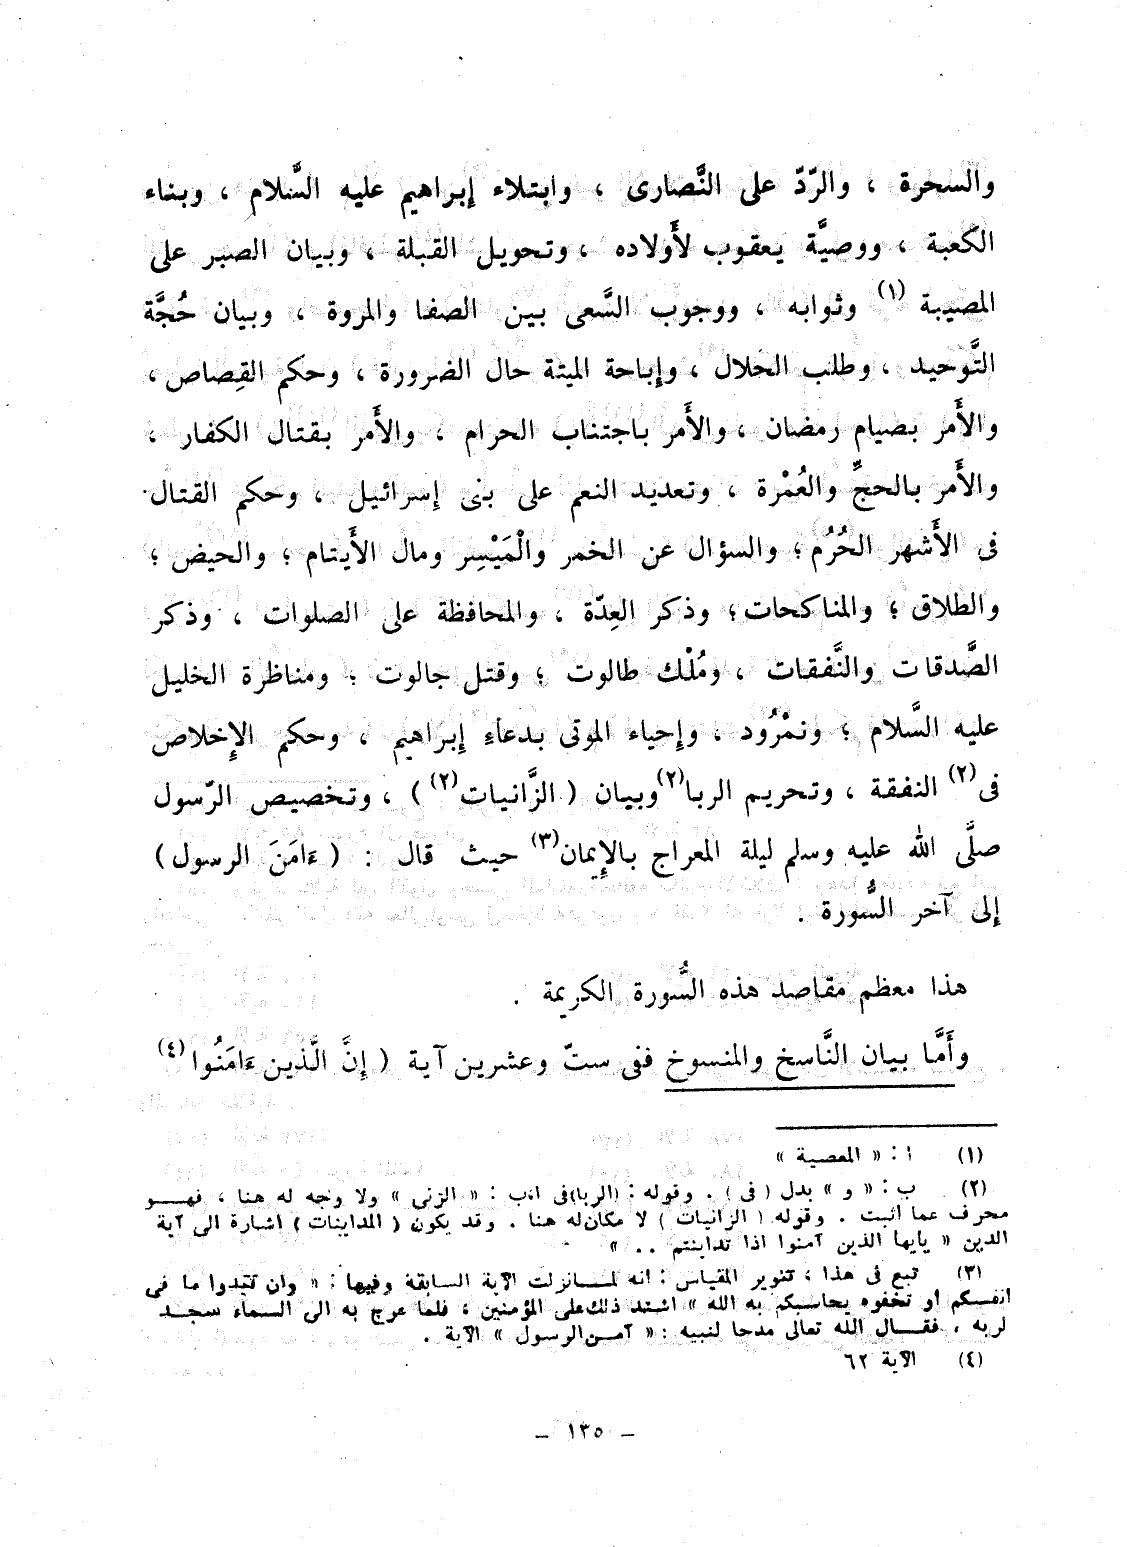 والسحرة ، والرّدّ على النَّصارى ، وابتلاء إبراهيم عليه السَّلام ، وبناء
الكعبة ، ووصيَّة يعقوب لأَولاده ، وتحويل القبلة ، وبيان الصبر على
المصيبة (١) وثوابه ، ووجوب السَّعى بين الصفا والمروة ، وبيان حُجَّة
التَّوحيد ، وطلب الحلال ، وإباحة الميتة حال الضرورة ، وحكم القِصاص ،
والأَمر بصيام رمضان ، والأَمر باجتناب الحرام ، والأَمر بقتال الكفار ،
والأَمر بالحجِّ والعُمْرة ، وتعديد النعم على بنى إسرائيل ، وحكم القتال
فى الأَشهر الحُرُم ؛ والسؤال عن الخمر والْمَيْسِر ومال الأَيتام ؛ والحيض ؛
والطلاق ؛ والمناكحات ؛ وذكر العِدّة ، والمحافظة على الصلوات ، وذكر
الصَّدقات والنَّفقات ، ومُلْك طالوت ؛ وقتل جالوت ؛ ومناظرة الخليل
عليه السَّلام ؛ ونمْرُود ، وإحياء الموتى بدعاءِ إبراهيم ، وحكم الإِخلاص
فى (٢) النفقة ، وتحريم الربا (٢) وبيان ( الزَّانيات (٢) ) ، وتخصيص الرّسول
صلَّى الله عليه وسلم ليلة المعراج بالإِيمان (٣) حيث قال : ( ءَامَنَ الرسول )
إلى آخر السُّورة .
هذا معظم مقاصد هذه السُّورة الكريمة .
وأَمَّا بيان النَّاسخ والمنسوخ ففى ستّ وعشرين آية ( إِنَّ الَّذين ءَامَنُوا (٤)
(١) أ : « المعصية »
(٢) ب : « و » بدل ( فى ) . وقوله : (الربا)فى ا،ب : « الزنى » ولا وجه له هنا ، فهو
محرف عما أثبت . وقوله ( الزانيات ) لا مكان له هنا . وقد يكون ( المداينات ) اشارة الى آية
الدين « يأيها الذين آمنوا اذا تداينتم .. »
(٣) تبع فى هذا ، تنوير المقياس : انه لما نزلت الآية السابقة وفيها : « وان تبدوا ما فى
انفسكم أو تخفوه يحاسبكم به الله » اشتد ذلك على المؤمنين ، فلما عرج به الى السماء سجد
لربه ، فقال الله تعالى مدحا لنبيه : « آمن الرسول » الآية .
(٤) الآية ٦٢
– ١٣٥ –